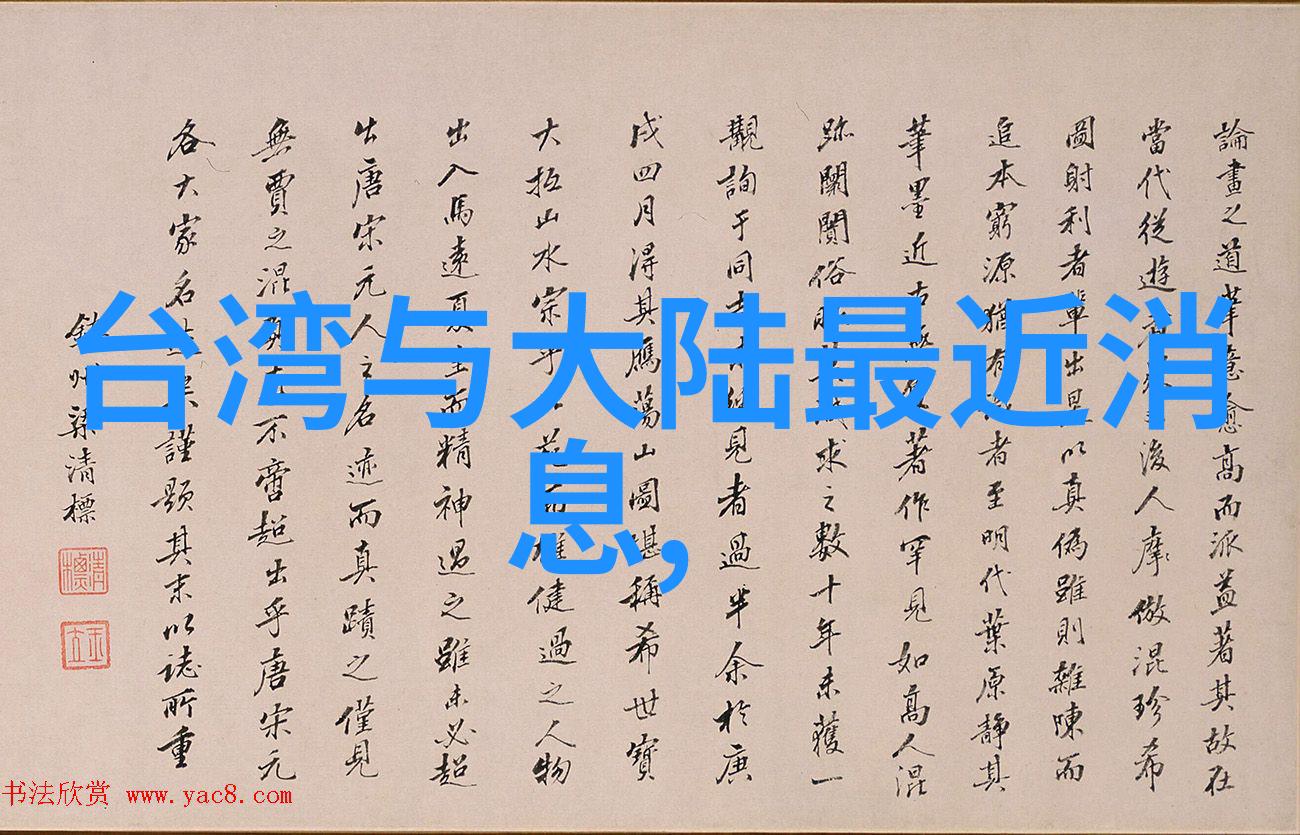 論畫之道筆意愈高而派益著其故在
當代從遊
後人摩倣混珍希
圖射利者單出是以真偽雖則雜陳而
追本窮源猶有
者至明代葉原靜其
筆墨近古
著作罕見如高人混
跡闤闠俗
求之數十年未獲一
觀詢于同
見者過半余於庚
戌四月得其鴈蕩山圖堪稱希世寶
大抵山水宗
雄健過之人物
出入馬遠夏圭而精神過之雖未必超
出唐宋元人之名迹而真蹟之僅見
無賈之混
不啻超出乎唐宋元
各大家名
謹題其末以誌所重
梁清標
清標
台湾与大陆最近消
息,
书法欣赏 www.yac8.com